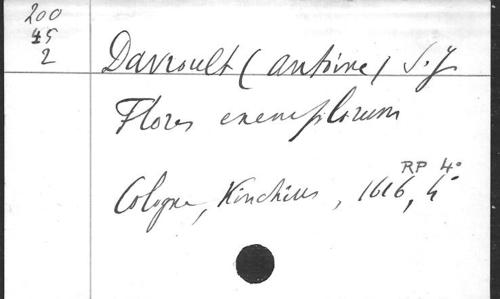 200
45
2
Davroult (Antoine) S.J.
Flores exemplorum
RP 4°
Cologne, Kinchius, 1616, 4°